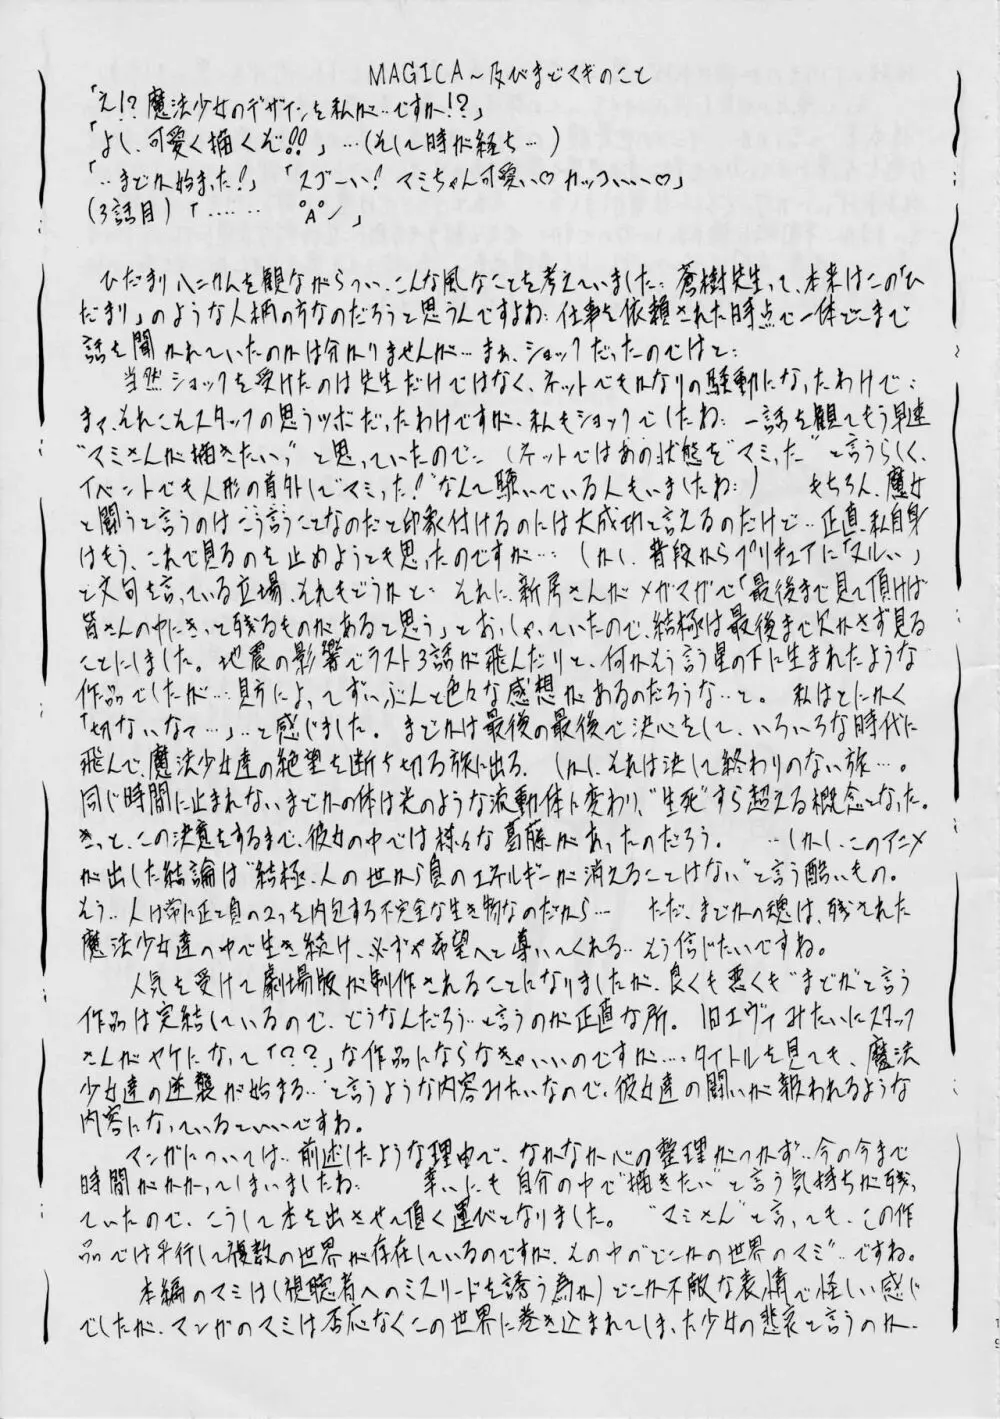 MAGICA～及びまどマギのこと
「え!? 魔法少女のデザインを私が…ですか!?」
「よし、可愛く描くぞ!!」…(そして時が経ち…)
「…まどか始まった!」「スゴーい! マミちゃん可愛い♡ カッコいいい♡」
(3話目)「…… °A°ノ」
ひだまりハニカムを観ながらつい、こんな風なことを考えていました: 蒼樹先生って、本来はこの「ひ
だまり」のような人柄の方なのだろうと思うんですよね: 仕事を依頼された時点で一体どこまで
話を聞かれていたのかは分かりませんが…まぁ、ショックだったのではと:
当然ショックを受けたのは先生だけではなく、ネットでもかなりの騒動になったわけで:
まァ、それこそスタッフの思うツボだったわけですが、私もショックでしたね: 一話を観てもう早速
“マミさんが描きたいッ” と思っていたので… (ネットではあの状態を“マミった” と言うらしく、
イベントでも人形の首外して“マミった!”なんて騒いでいる人もいましたね:) もちろん、魔女
と闘うと言うのはこう言うことなのだと印象付けるのには大成功と言えるのだけど…正直、私自身
はもう、これで見るのを止めようとも思ったのですが… しかし、普段からプリキュアに「ヌルい」
と文句を言っている立場、それもどうかと: それに、新房さんがメガマガで「最後まで見て頂けば
皆さんの中にきっと残るものがあると思う」とおっしゃっていたので、結極は最後まで欠かさず見る
ことにしました。地震の影響でラスト3話が飛んだりと、何かもう言う星の下に生まれたような
作品でしたが…見方によってずいぶんと色々な感想があるのだろうな…と。 私はとにかく
「切ないなァ…」…と感じました。まどかは最後の最後で決心をして、いろいろな時代に
飛んで、魔法少女達の絶望を断ち切る旅に出る。しかし、それは決して終わりのない旅…。
同じ時間に止まれないまどかの体は光のような流動体に変わり、“生死”すら超える概念となった。
きっと、この決意をするまで、彼女の中では様々な葛藤があったのだろう。 …しかし、このアニメ
が出した結論は“結極、人の世から負のエネルギーが消えることはない”と言う酷いもの。
もう…人は常に正と負の2つを内包する不完全な生き物なのだから… ただ、まどかの魂は、残された
魔法少女達の中で生き続け、必ずや希望へと導いてくれる…もう信じたいですね。
人気を受けて劇場版が制作されることになりましたが、良くも悪くも“まどか”と言う
作品は完結しているので、どうなんだろう…と言うのが正直な所。旧エヴァみたいにスタッフ
さんがヤケになって「??」な作品にならなきゃいいのですが…、タイトルを見ても、魔法
少女達の逆襲が始まる…と言うような内容みたいなので、彼女達の闘いが報われるような
内容になっているといいですね。
マンガについては…前述したような理由で、なかなか心の整理がつかず…今の今まで
時間がかかってしまいましたね: 幸いにも自分の中で“描きたい”と言う気持ちが残っ
ていたので、こうして本を出させて頂く運びとなりました。“マミさん”と言っても、この作
品では平行して複数の世界が存在しているのですが、その中の“どこかの世界のマミ”…ですね。
本編のマミは(視聴者へのミスリードを誘う為か)どこか不敵な表情で怪しい感じ
でしたが、マンガのマミは否応なくこの世界に巻き込まれてしまった少女の悲哀と言うのか、